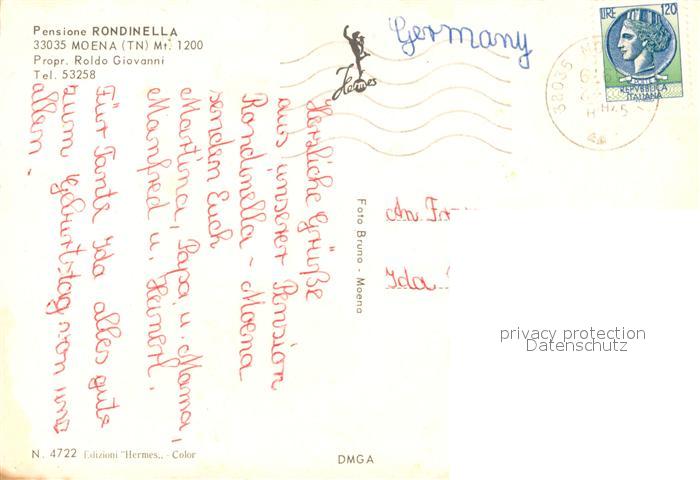 Pensione RONDINELLA
33035 MOENA (TN) Mt. 1200
Propr. Roldo Giovanni
Tel. 53258
Hermes
Germany
LIRE 120
REPVBBLICA
ITALIANA
38035
Herzliche Grüße
aus unserer Pension
Rondinella - Moena
senden Euch
Martina, Papa u. Mama,
Manfred u. Heinerl.
Für Tante Ida alles gute
zum Geburtstag von uns
allen.
Foto Bruno - Moena
An Fr
Ida
privacy protection
Datenschutz
N. 4722 Edizioni "Hermes,, - Color
DMGA